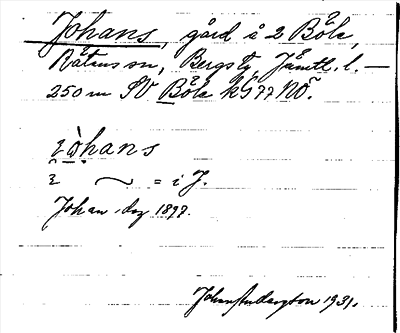 Johans, gård å 2 Böle,
Rätans sn, Bergs tg, Jämtl. l. —
250 m SV Böle k G 77 NÖ.
i̯òhans
i̯ ~ = i J.
Johan, dog 1897.
Johan Andersson 1931.